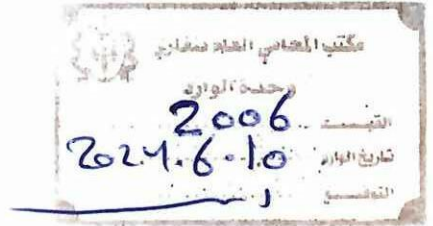 مكتب المحامي العام بنغازي
وحدة الوارد
القيد 2006
تاريخ الوارد 2024.6.10
التوقيع